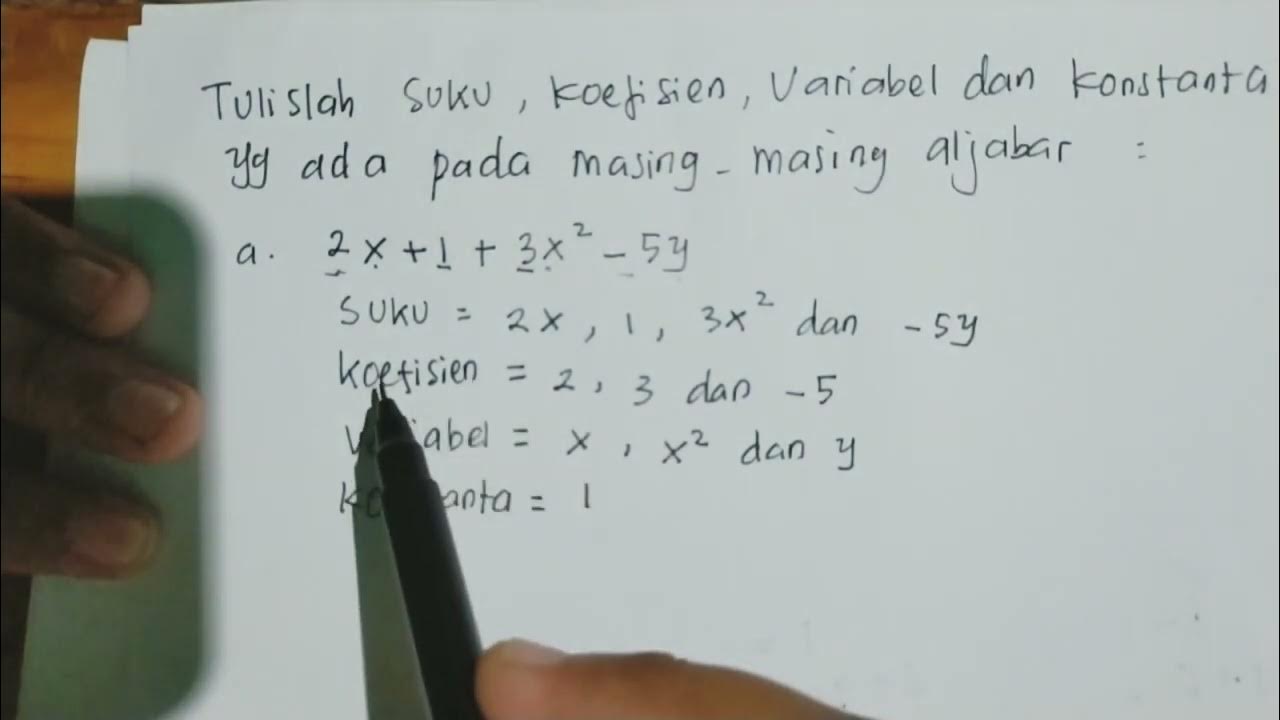 Tulislah suku, koefisien, Variabel dan konstanta
yg ada pada masing-masing aljabar :
a. 2x + 1 + 3x² - 5y
suku = 2x, 1, 3x² dan -5y
koefisien = 2, 3 dan -5
= x, x² dan y
= 1